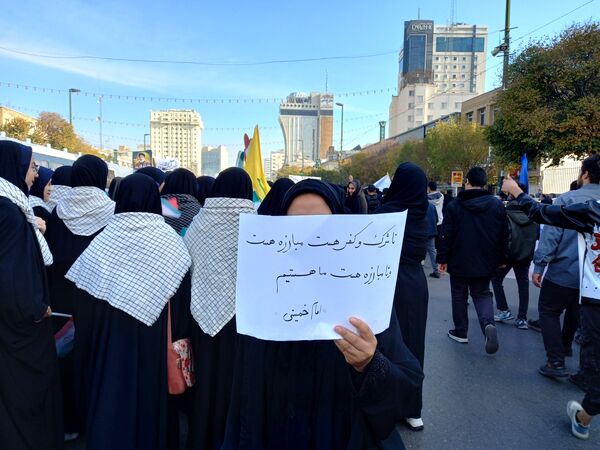 تا شرک و کفر هست مبارزه هست
و تا مبارزه هست ما هستیم
امام خمینی